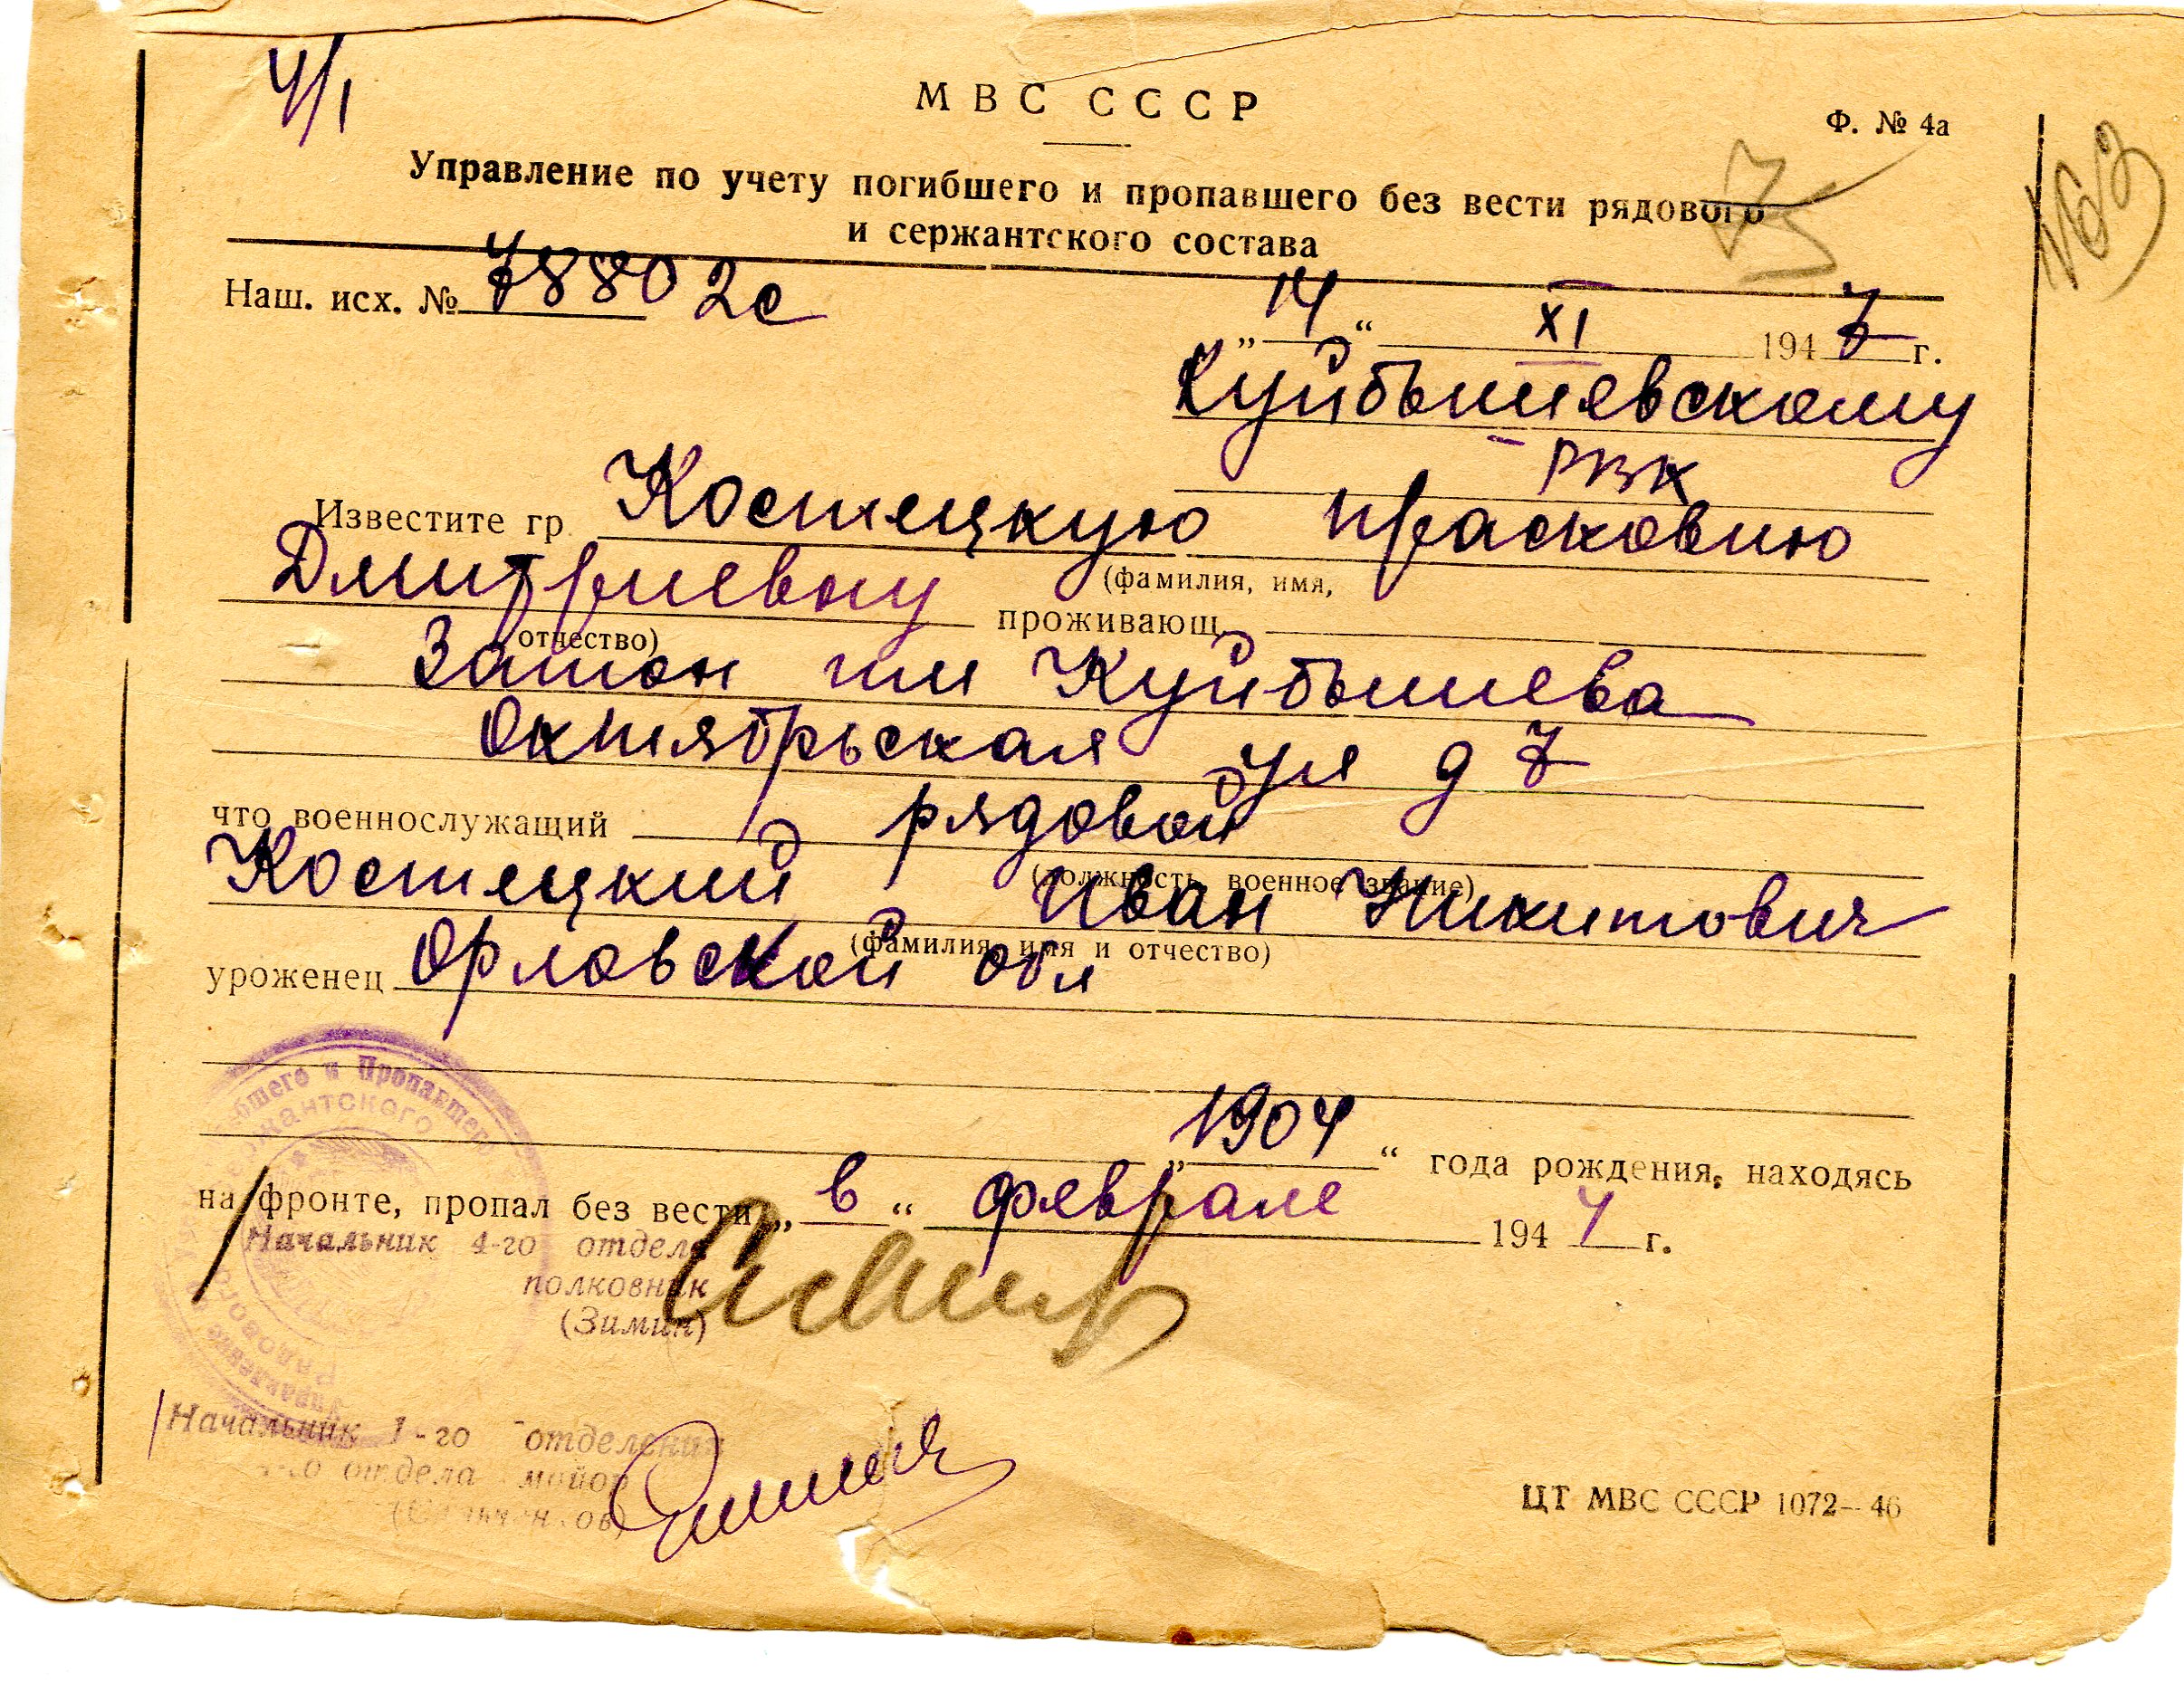 4/1
МВС СССР
Ф. № 4а
Управление по учету погибшего и пропавшего без вести рядового
и сержантского состава
Наш. исх. № 78802с
„14“ XI 1947 г.
Куйбышевскому
РВК
Известите гр. Костецкую Прасковию
(фамилия, имя,
Дмитриевну проживающ
отчество)
Затон им Куйбышева
Октябрьская ул д 7
что военнослужащий рядовой
(должность, военное звание)
Костецкий Иван Никитович
(фамилия, имя и отчество)
уроженец Орловской обл
„1904“ года рождения, находясь
на фронте, пропал без вести „в“ феврале 1944 г.
Начальник 4-го отдела
полковник
(Зимин)
Начальник 1-го отделения
отдела майор
ЦТ МВС СССР 1072—46